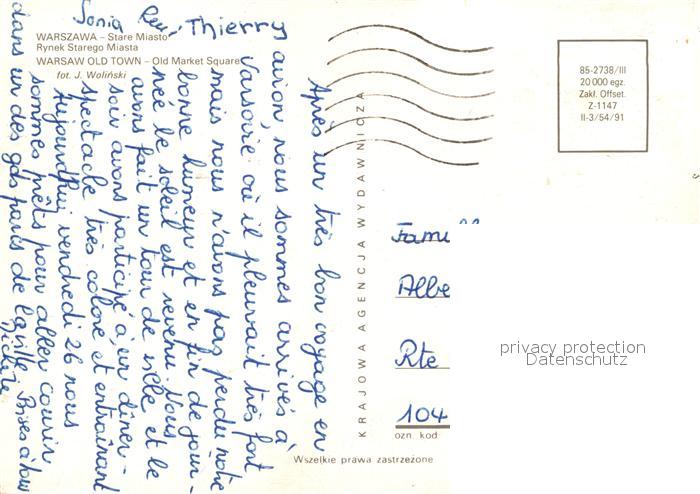 WARSZAWA – Stare Miasto
Rynek Starego Miasta
WARSAW OLD TOWN – Old Market Square
fot. J. Woliński
Après un très bon voyage en
avion, nous sommes arrivés à
Varsovie où il pleuvait très fort
mais nous n'avons pas perdu notre
bonne humeur et en fin de jour-
née le soleil est revenu. Nous
avons fait un tour de ville et le
soir avons participé à un dîner-
spectacle très coloré et entraînant
Aujourd'hui vendredi 26 nous
sommes prêts pour aller courir
dans un des gds parcs de la ville Bises à tous
Sonia Thierry
KRAJOWA AGENCJA WYDAWNICZA
85-2738/III
20 000 egz.
Zakł. Offset.
Z-1147
II-3/54/91
Fami
Albe
Rte
104
ozn. kod
privacy protection
Datenschutz
Wszelkie prawa zastrzeżone